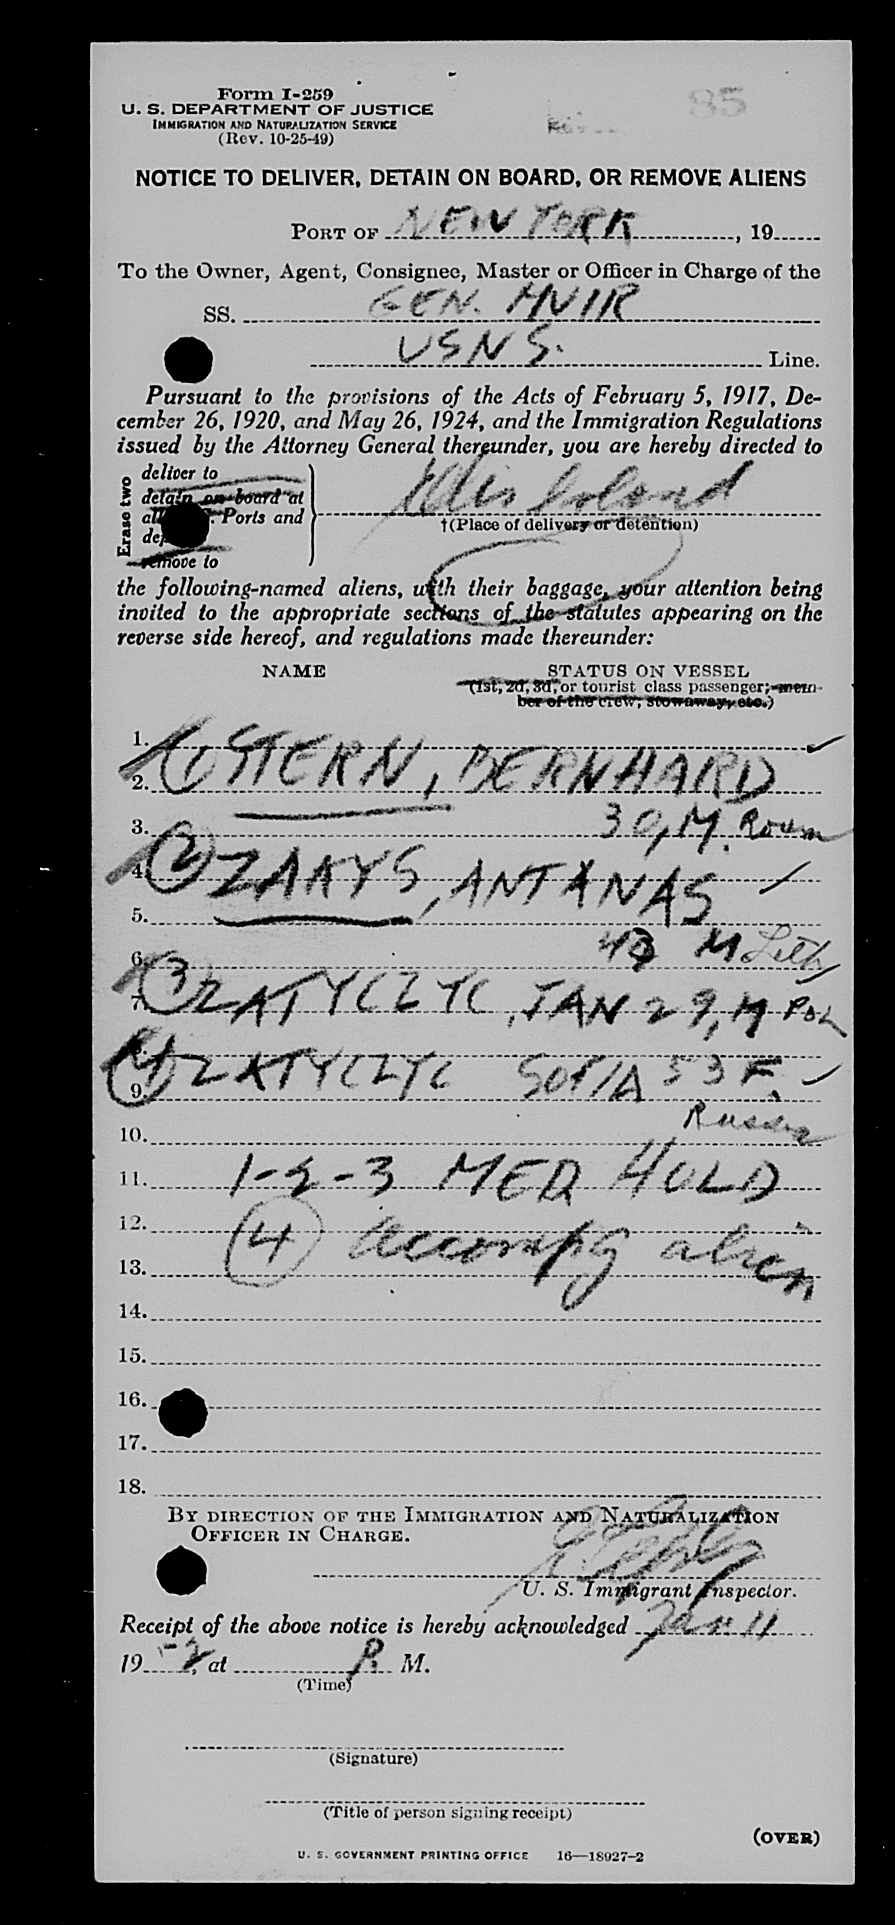 85
Form I-259
U. S. DEPARTMENT OF JUSTICE
IMMIGRATION AND NATURALIZATION SERVICE
(Rev. 10-25-49)
NOTICE TO DELIVER, DETAIN ON BOARD, OR REMOVE ALIENS
PORT OF NEW YORK, 19
To the Owner, Agent, Consignee, Master or Officer in Charge of the
SS. GEN. MUIR
USNS. Line.
Pursuant to the provisions of the Acts of February 5, 1917, De-
cember 26, 1920, and May 26, 1924, and the Immigration Regulations
issued by the Attorney General thereunder, you are hereby directed to
Erase two
deliver to
detain on board at
all Ports and
remove to
Ellis Island
†(Place of delivery or detention)
the following-named aliens, with their baggage, your attention being
invited to the appropriate sections of the statutes appearing on the
reverse side hereof, and regulations made thereunder:
NAME STATUS ON VESSEL
(1st, 2d, 3d, or tourist class passenger; mem-
ber of the crew, stowaway, etc.)
1.
2. 1 STERN, BERNHARD
3. 30, M. Roum
4. 2 ZAKYS, ANTANAS
5.
6. 43 M Lith
7. 3 ZATYCZYC, JAN 29, M Pol
9. 4 ZATYCZYC SOFIA 53 F.
10. Russia
11. 1-2-3 MED HOLD
12.
13. 4 accompg alien
14.
15.
16.
17.
18.
BY DIRECTION OF THE IMMIGRATION AND NATURALIZATION
OFFICER IN CHARGE.
U. S. Immigrant Inspector.
Receipt of the above notice is hereby acknowledged Jan 11
1952, at P. M.
(Time)
(Signature)
(Title of person signing receipt)
(OVER)
U. S. GOVERNMENT PRINTING OFFICE 16—18927-2